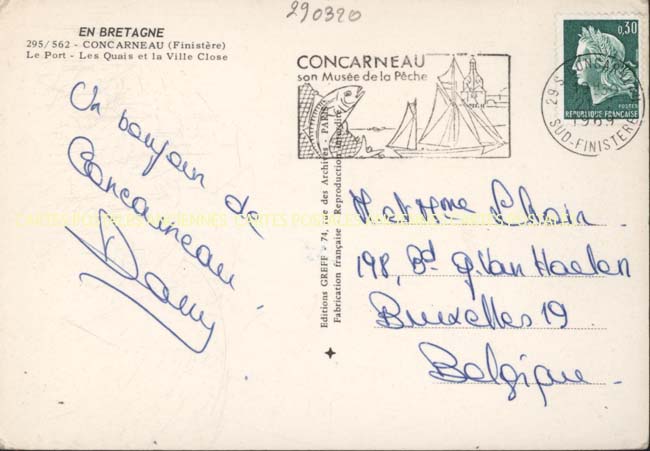 290320
EN BRETAGNE
295/562 - CONCARNEAU (Finistère)
Le Port - Les Quais et la Ville Close
CONCARNEAU
son Musée de la Pêche
0,30
POSTES
REPUBLIQUE FRANÇAISE
29 S CONCARNEAU
1969
SUD-FINISTERE
Un bonjour de
Concarneau.
Dany
Editions GREFF - 74, rue des Archives - PARIS
Fabrication française - Reproduction interdite
CARTES POSTALES ANCIENNES CARTES POSTALES ANCIENNES CARTES POSTALES
M et Mme
198, Bd G. Van Haelen
Bruxelles 19
Belgique.